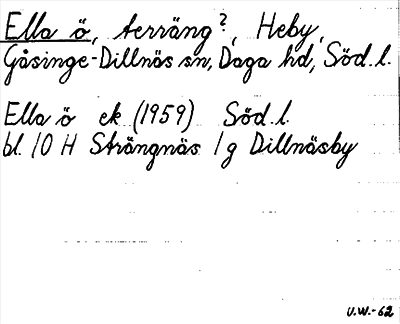 Ella ö, terräng?, Heby,
Gåsinge-Dillnäs sn, Daga hd, Söd.l.
Ella ö ek. (1959) Söd.l.
bl. 10 H Strängnäs 1g Dillnäsby
U.W.-62